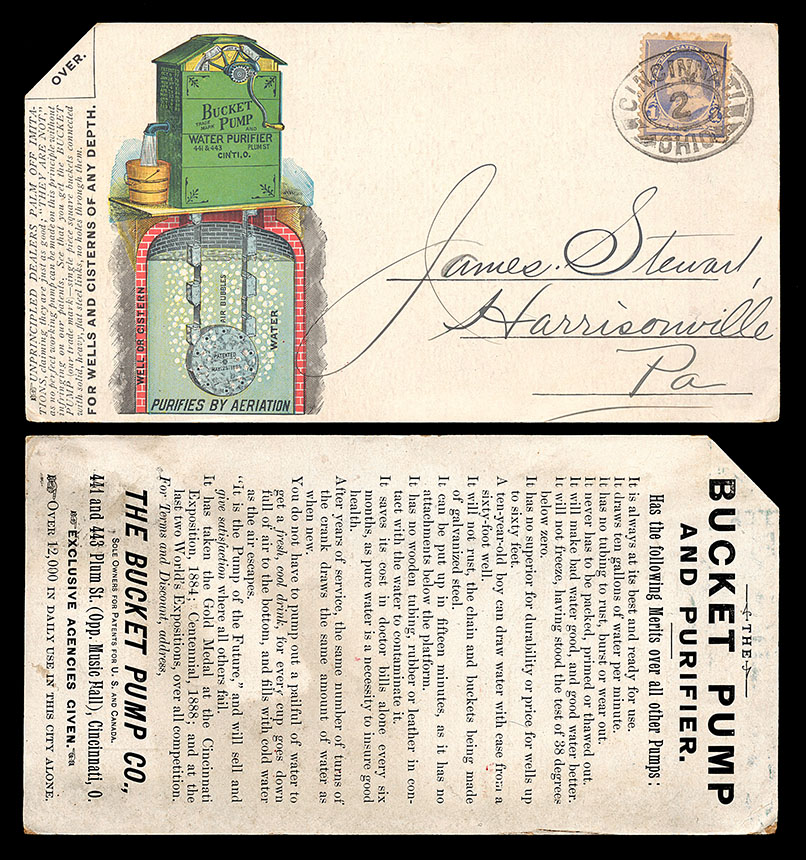 OVER.
☞ UNPRINCIPLED DEALERS PALM OFF IMITA-
TIONS, claiming they are just as good; "THEY ARE NOT,"
as no perfect working pump can be made on this principle without
infringing on our patents. See that you get the BUCKET
PUMP (our trade mark)—single piece square buckets connected
with solid, heavy, flat steel links, no holes through them.
FOR WELLS AND CISTERNS OF ANY DEPTH.
BUCKET
TRADE MARK PUMP AND
WATER PURIFIER
441 & 443 PLUM ST
CIN'TI, O.
WELL OR CISTERN
AIR BUBBLES
WATER
PATENTED
PURIFIES BY AERIATION
CINCINNATI
2
OHIO
James. Stewart,
Harrisonville
Pa
THE
BUCKET PUMP
AND PURIFIER.
Has the following Merits over all other Pumps:
It is always at its best and ready for use.
It draws ten gallons of water per minute.
It has no tubing to rust, burst or wear out.
It never has to be packed, primed or thawed out.
It will make bad water good, and good water better.
It will not freeze, having stood the test of 38 degrees
below zero.
It has no superior for durability or price for wells up
to sixty feet.
A ten-year-old boy can draw water with ease from a
sixty-foot well.
It will not rust, the chain and buckets being made
of galvanized steel.
It can be put up in fifteen minutes, as it has no
attachments below the platform.
It has no wooden tubing, rubber or leather in con-
tact with the water to contaminate it.
It saves its cost in doctor bills alone every six
months, as pure water is a necessity to insure good
health.
After years of service, the same number of turns of
the crank draws the same amount of water as
when new.
You do not have to pump out a pailful of water to
get a fresh, cool drink, for every cup goes down
full of air to the bottom, and fills with cold water
as the air escapes.
"It is the Pump of the Future," and will sell and
give satisfaction where all others fail.
It has taken the Gold Medal at the Cincinnati
Exposition, 1884; Centennial, 1888; and at the
last two World's Expositions, over all competition.
For Terms and Discount, address,
THE BUCKET PUMP CO.,
SOLE OWNERS FOR PATENTS FOR U. S. AND CANADA.
441 and 443 Plum St. (Opp. Music Hall), Cincinnati, O.
☞ EXCLUSIVE AGENCIES GIVEN. ☜
☞ OVER 12,000 IN DAILY USE IN THIS CITY ALONE.